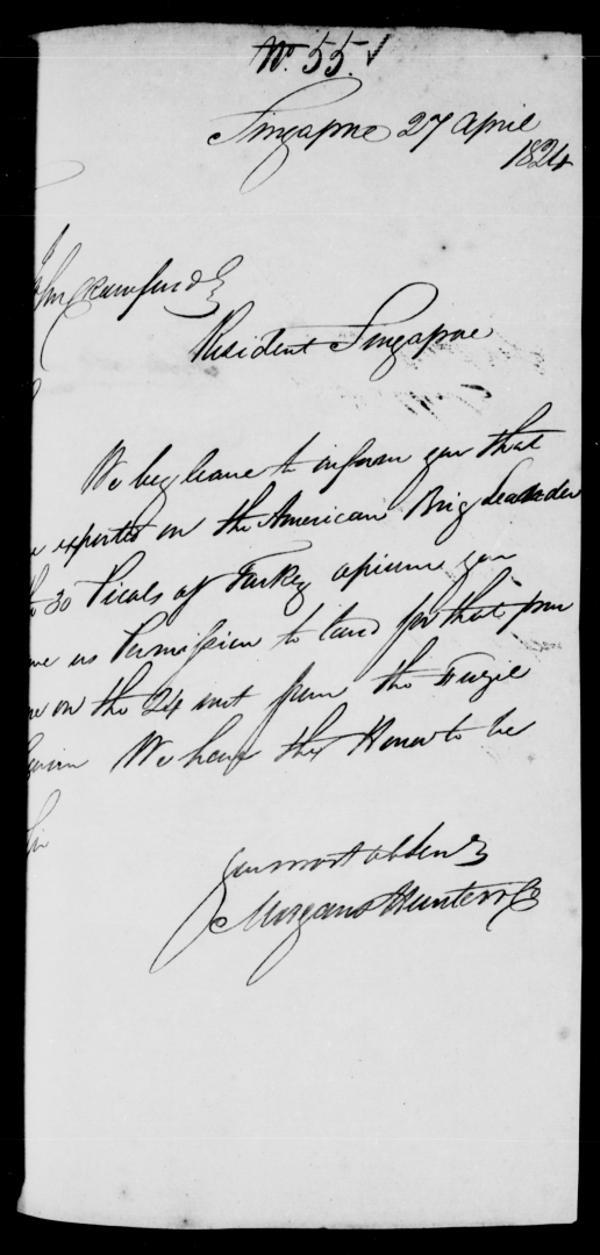 No. 55. ✓
Singapore 27 April
1824
John Crawfurd Esq
Resident Singapore
We beg leave to inform you that
we exported on the American Brig Leander
the 30 Piculs of Turkey opium you
gave us Permission to land for that pur
on the 24 inst from the
We have the Honor to be
Sir
your most obden
Morgans Hunter & Co